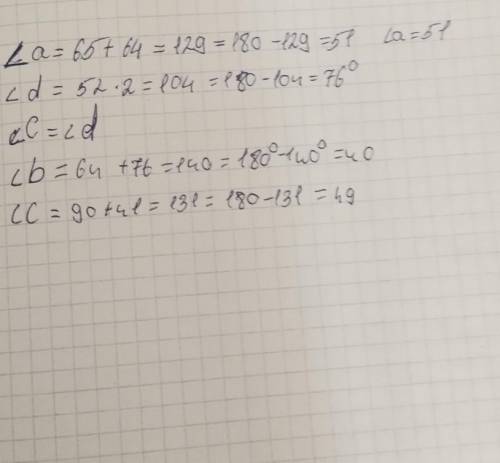 ∠a = 65 + 64 = 129 = 180 - 129 = 51 ∠a = 51
∠d = 52 · 2 = 104 = 180 - 104 = 76°
∠C = ∠d
∠b = 64 + 76 = 140 = 180° - 140° = 40
∠C = 90 + 41 = 131 = 180 - 131 = 49